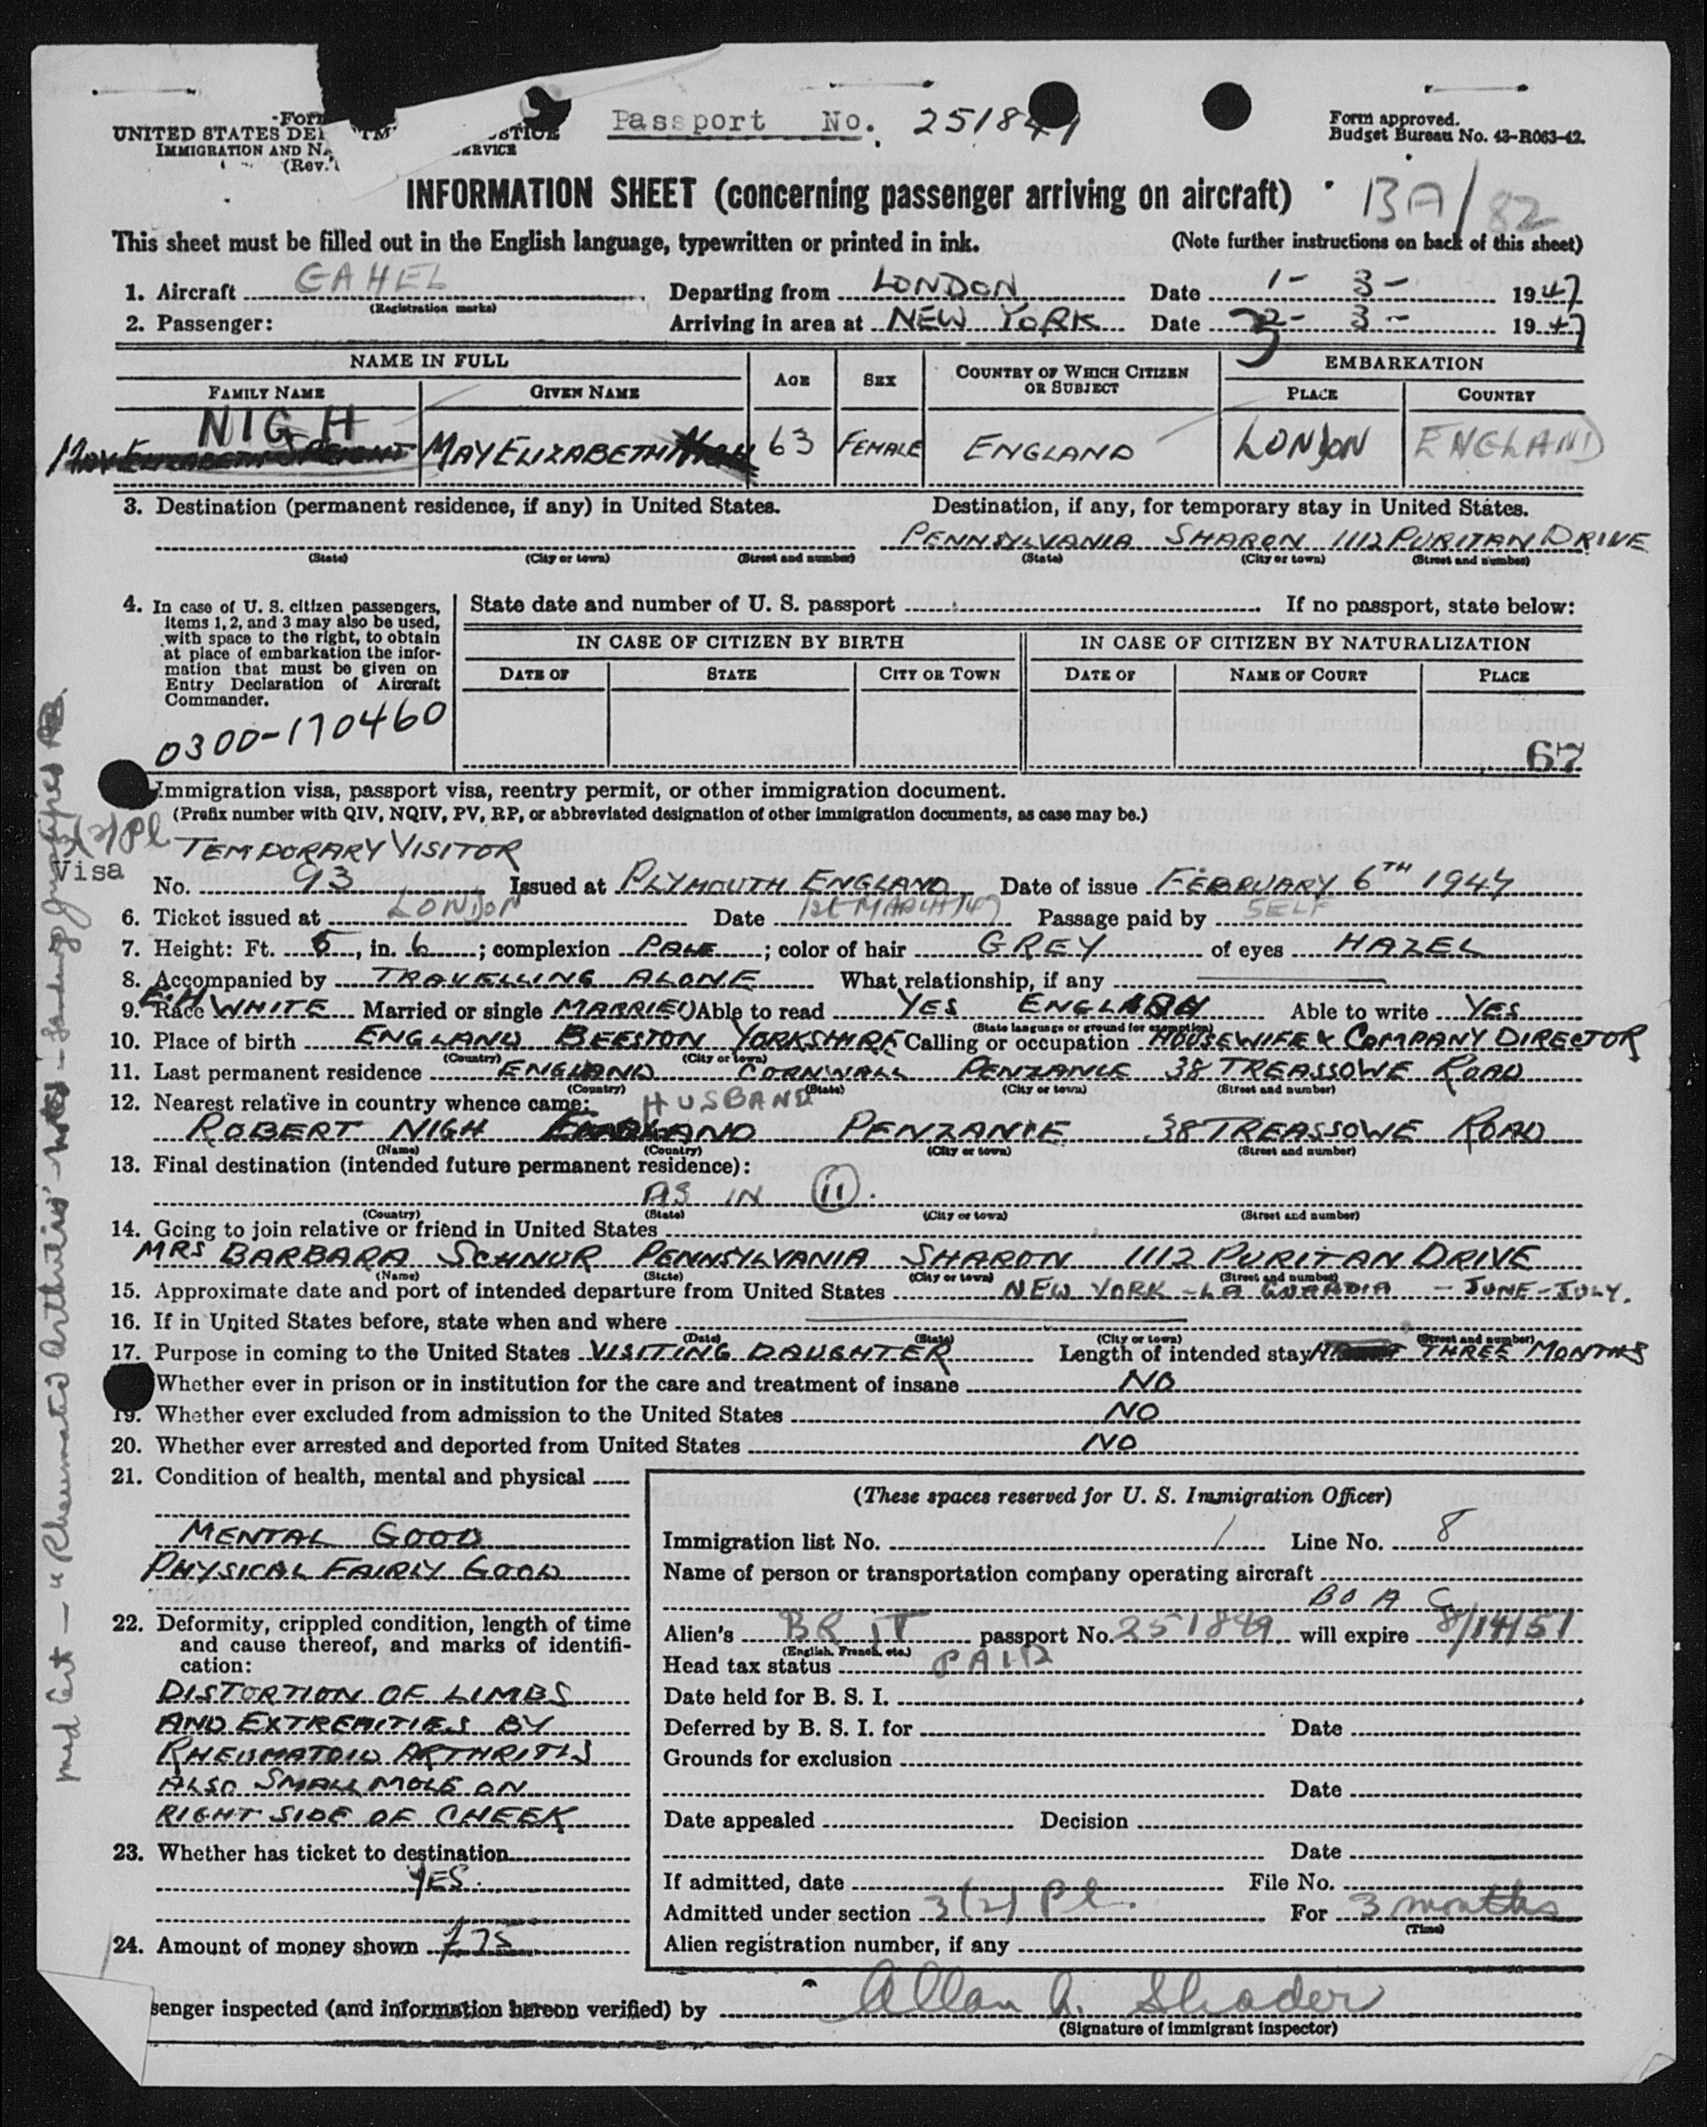 Passport No. 251849
Form approved.
Budget Bureau No. 43-R063-42.
UNITED STATES
IMMIGRATION AND
(Rev.
INFORMATION SHEET (concerning passenger arriving on aircraft)
BA/82
This sheet must be filled out in the English language, typewritten or printed in ink. (Note further instructions on back of this sheet)
1. Aircraft GAHEL Departing from LONDON Date 1-3-1947
(Registration marks)
2. Passenger: Arriving in area at NEW YORK Date 3-1947
NAME IN FULL AGE SEX COUNTRY OF WHICH CITIZEN OR SUBJECT EMBARKATION
FAMILY NAME GIVEN NAME PLACE COUNTRY
NIGH MAY ELIZABETH 63 FEMALE ENGLAND LONDON ENGLAND
3. Destination (permanent residence, if any) in United States. Destination, if any, for temporary stay in United States.
PENNSYLVANIA SHARON 1112 PURITAN DRIVE
(State) (City or town) (Street and number) (State) (City or town) (Street and number)
4. In case of U. S. citizen passengers, items 1, 2, and 3 may also be used, with space to the right, to obtain at place of embarkation the information that must be given on Entry Declaration of Aircraft Commander.
State date and number of U. S. passport If no passport, state below:
IN CASE OF CITIZEN BY BIRTH IN CASE OF CITIZEN BY NATURALIZATION
DATE OF STATE CITY OR TOWN DATE OF NAME OF COURT PLACE
0300-170460
67
Immigration visa, passport visa, reentry permit, or other immigration document.
(Prefix number with QIV, NQIV, PV, RP, or abbreviated designation of other immigration documents, as case may be.)
3(2)Pl TEMPORARY VISITOR
Visa No. 93 Issued at PLYMOUTH ENGLAND Date of issue FEBRUARY 6TH 1947
6. Ticket issued at LONDON Date 1st MARCH 1947 Passage paid by SELF
7. Height: Ft. 5, in. 6; complexion PALE; color of hair GREY of eyes HAZEL
8. Accompanied by TRAVELLING ALONE What relationship, if any
9. Race WHITE Married or single MARRIED Able to read YES ENGLISH Able to write YES
(State language or ground for exemption)
10. Place of birth ENGLAND BEESTON YORKSHIRE Calling or occupation HOUSEWIFE & COMPANY DIRECTOR
(Country) (City or town)
11. Last permanent residence ENGLAND CORNWALL PENZANCE 38 TREASSOWE ROAD
(Country) (State) (City or town) (Street and number)
12. Nearest relative in country whence came: HUSBAND
ROBERT NIGH ENGLAND PENZANCE 38 TREASSOWE ROAD
(Name) (Country) (City or town) (Street and number)
13. Final destination (intended future permanent residence):
AS IN 11.
(Country) (State) (City or town) (Street and number)
14. Going to join relative or friend in United States
MRS BARBARA SCHNUR PENNSYLVANIA SHARON 1112 PURITAN DRIVE
(Name) (State) (City or town) (Street and number)
15. Approximate date and port of intended departure from United States NEW YORK - LA GUARDIA - JUNE - JULY.
16. If in United States before, state when and where
(Date) (State) (City or town) (Street and number)
17. Purpose in coming to the United States VISITING DAUGHTER Length of intended stay THREE MONTHS
Whether ever in prison or in institution for the care and treatment of insane NO
19. Whether ever excluded from admission to the United States NO
20. Whether ever arrested and deported from United States NO
21. Condition of health, mental and physical
MENTAL GOOD
PHYSICAL FAIRLY GOOD
22. Deformity, crippled condition, length of time
and cause thereof, and marks of identifi-
cation:
DISTORTION OF LIMBS
AND EXTREMITIES BY
RHEUMATOID ARTHRITIS
ALSO SMALL MOLE ON
RIGHT SIDE OF CHEEK
23. Whether has ticket to destination
YES.
24. Amount of money shown £75
(These spaces reserved for U. S. Immigration Officer)
Immigration list No. 1 Line No. 8
Name of person or transportation company operating aircraft
BOAC
Alien's BRIT passport No. 251849 will expire 8/14/51
(English, French, etc.)
Head tax status PAID
Date held for B. S. I.
Deferred by B. S. I. for Date
Grounds for exclusion
Date
Date appealed Decision
Date
If admitted, date File No.
Admitted under section 3(2) Pl. For 3 months
(Time)
Alien registration number, if any
senger inspected (and information hereon verified) by Allan A. Shader
(Signature of immigrant inspector)
med Cert - "Rheumatoid Arthritis"